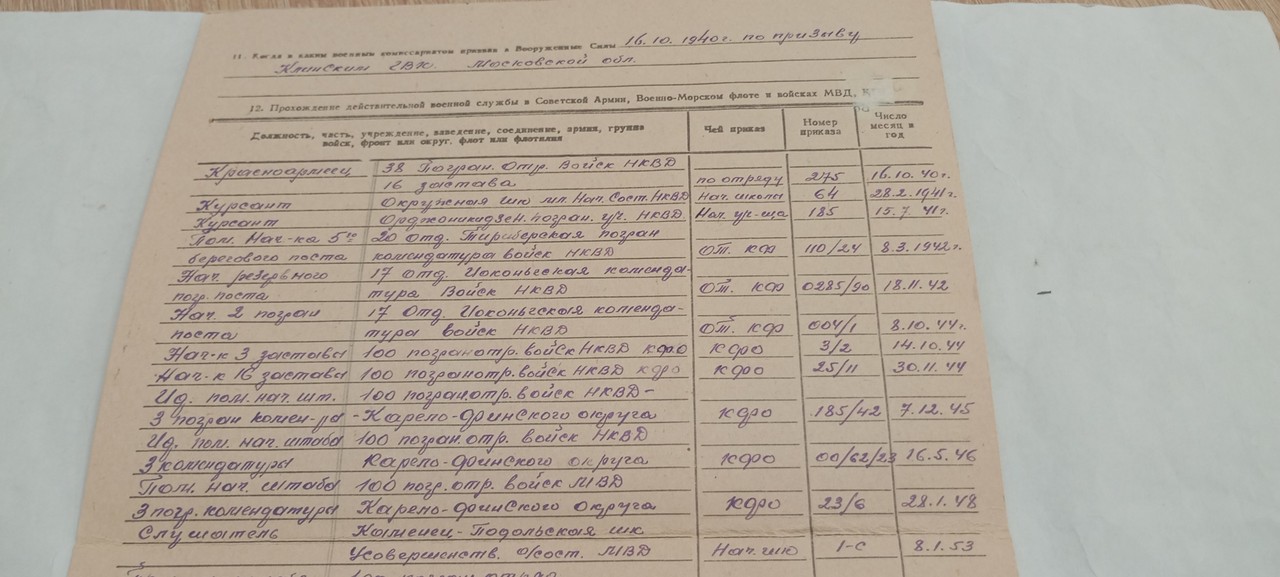 11. Когда и каким военным комиссариатом призван в Вооруженные Силы 16.10.1940г. по призыву
Клинским ГВК. Московской обл.
12. Прохождение действительной военной службы в Советской Армии, Военно-Морском флоте и войсках МВД,
Должность, часть, учреждение, заведение, соединение, армия, группа войск, фронт или округ, флот или флотилия Чей приказ Номер приказа Число месяц и год
Красноармеец 38 Погран. Отр. Войск НКВД
16 застава по отряду 275 16.10.40г.
Курсант Окружная шк мл. Нач. Сост. НКВД Нач. школы 64 28.2.1941г.
Курсант Орджоникидзен. погран. уч. НКВД Нач. уч-ща 185 15.7.41г.
Пом. Нач-ка 5го 20 отд. Териберская погран
берегового поста комендатура войск НКВД От. КФ 110/24 8.3.1942г.
Нач. резервного 17 Отд. Иоконьгская коменда-
погр. поста тура Войск НКВД От. КФ 0285/90 18.11.42
Нач. 2 погран 17 Отд. Иоконьгская коменда-
поста тура войск НКВД От. КФ 004/1 8.10.44г.
Нач-к 3 заставы 100 погранотр. войск НКВД КФО КФО 3/2 14.10.44
Нач-к 16 заставы 100 погранотр. войск НКВД КФО КФО 25/11 30.11.44
Ид. пом. нач. шт. 100 погранотр. войск НКВД-
3 погран комен-ра -Карело-Финского округа КФО 185/42 7.12.45
Ид. пом. нач. штаба 100 погран. отр. войск НКВД
3 комендатуры Карело-Финского округа КФО 00/62/23 16.5.46
Пом. Нач. штаба 100 погр. отр. войск МВД
3 погр. комендатуры Карело-Финского округа КФО 23/6 28.1.48
Слушатель Каменец-Подольская шк
Усовершенств. о/сост. МВД Нач. шк 1-с 8.1.53